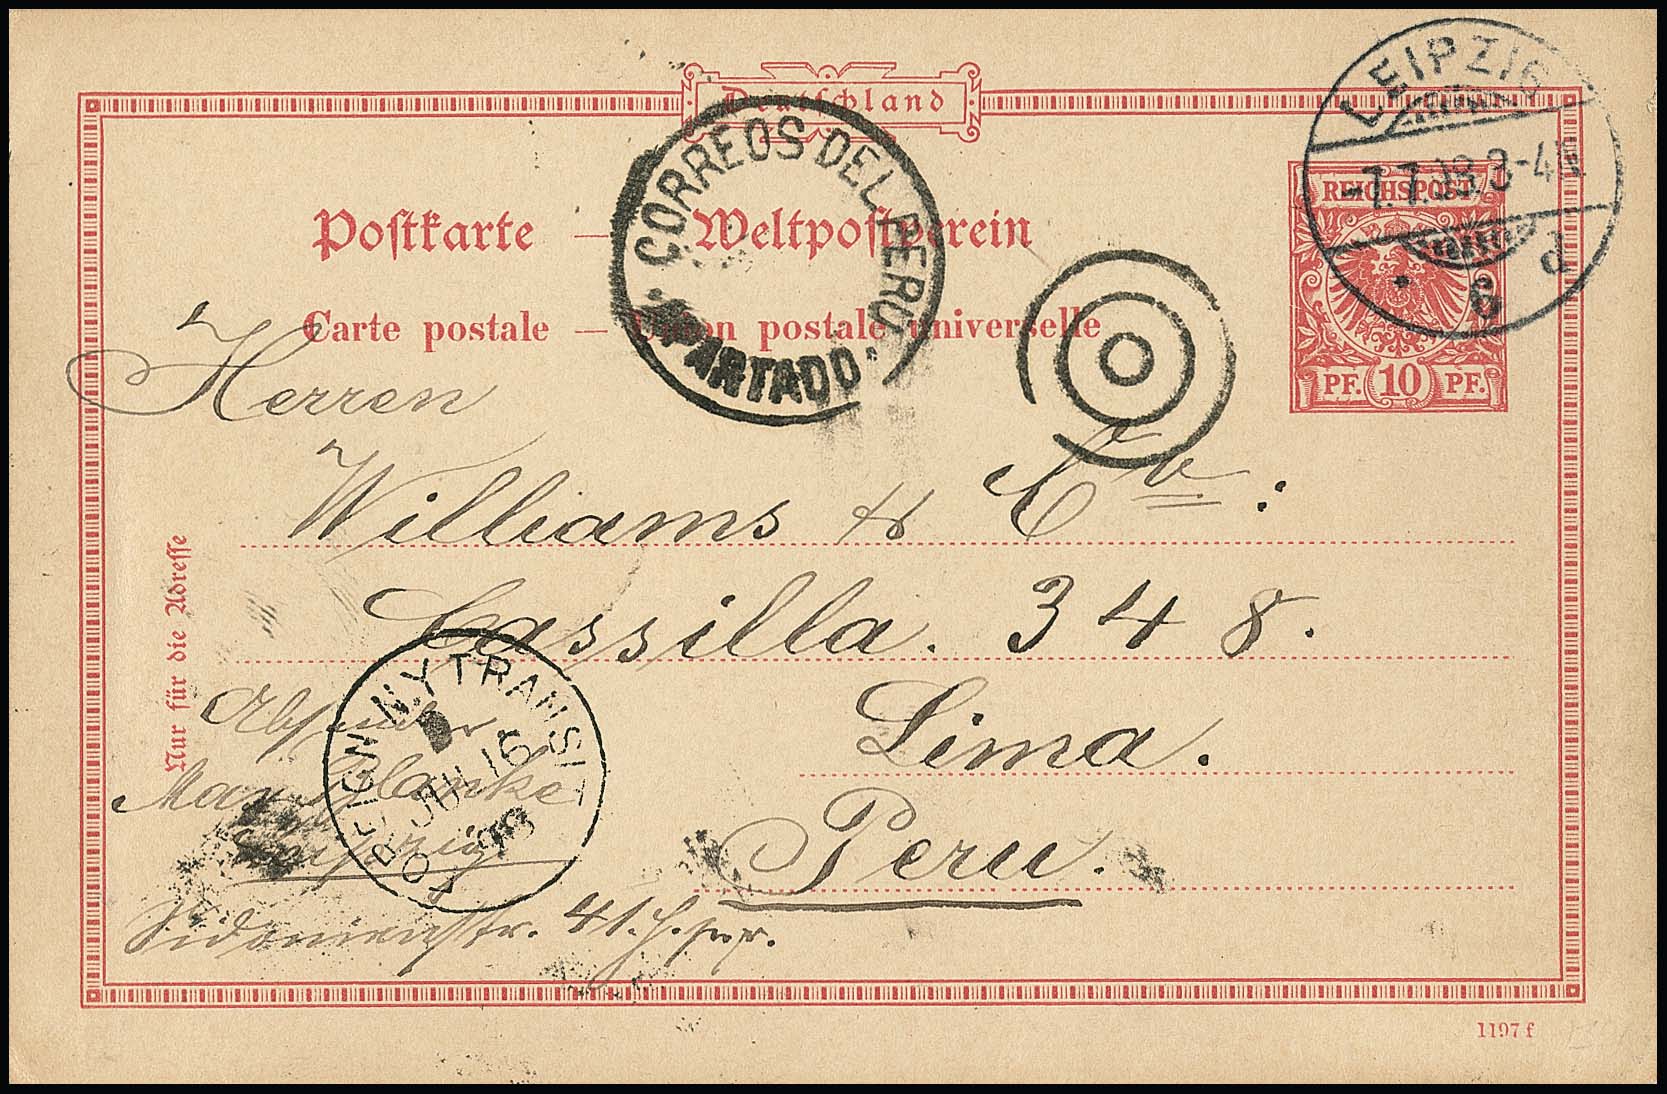 Deutschland
Postkarte — Weltpostverein
Carte postale — Union postale universelle
LEIPZIG
-7.7.98.3-4N
6 d
REICHSPOST
PF. 10 PF.
CORREOS DEL PERU
APARTADO
Herren
Williams & Co:
Cassilla. 348.
Lima.
Peru.
Nur für die Adresse
FOREIGN N.Y TRANSIT
JUL 16
98
Absender:
Max Blanke
Leipzig
Sidonienstr. 41.
1197 f